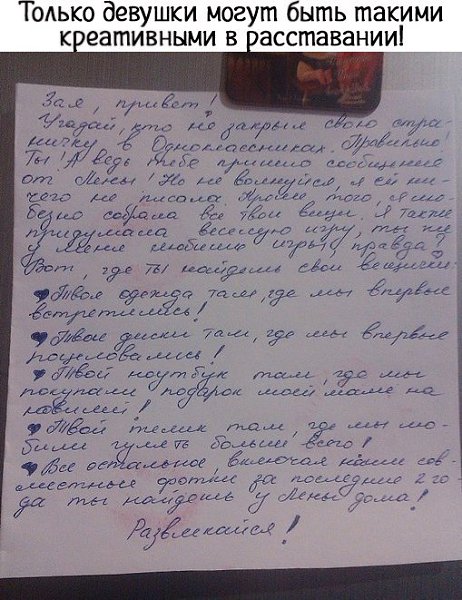 Только девушки могут быть такими
креативными в расставании!
Зая, привет!
Угадай, кто не закрыл свою стра-
ничку в Одноклассниках. Правильно!
Ты! А ведь тебе пришло сообщение
от Лены! Но не волнуйся, я ей ни-
чего не писала. Кроме того, я лю-
безно собрала все твои вещи. Я также
придумала веселую игру, ты же
у меня любишь игры, правда?
Вот, где ты найдешь свои вещички:
♥ Твоя одежда там, где мы впервые
встретились!
♥ Твои диски там, где мы впервые
поцеловались!
♥ Твой ноутбук там, где мы
покупали подарок моей маме на
♥ Твой телик там, где мы лю-
били гулять больше всего!
♥ Все остальное, включая наши сов-
местные фотки за последние 2 го-
да ты найдешь у Лены дома!
Развлекайся!